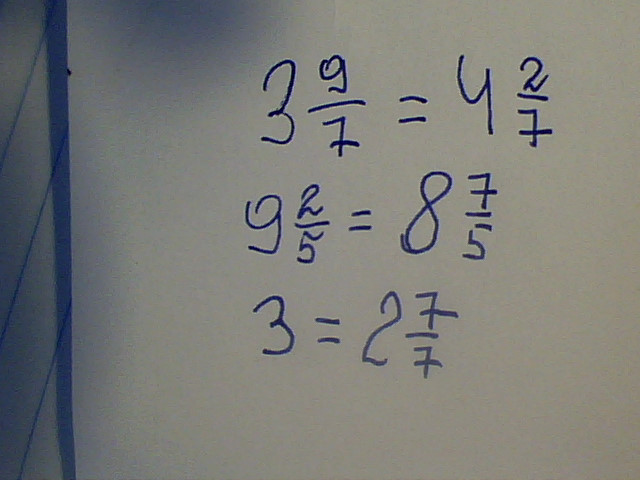 3 9/7 = 4 2/7
9 2/5 = 8 7/5
3 = 2 7/7